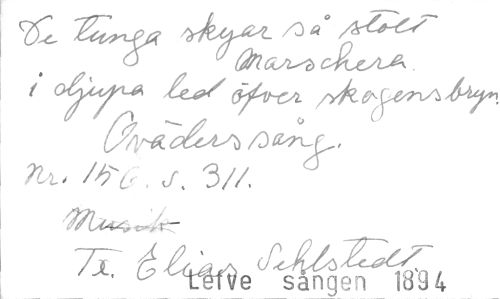 De tunga skyar så stolt
marschera
i djupa led öfver skogensbryn
Oväderssång.
Nr. 156. s. 311.
Musik
Tx. Elias Sehlstedt.
Lefve sången 1894